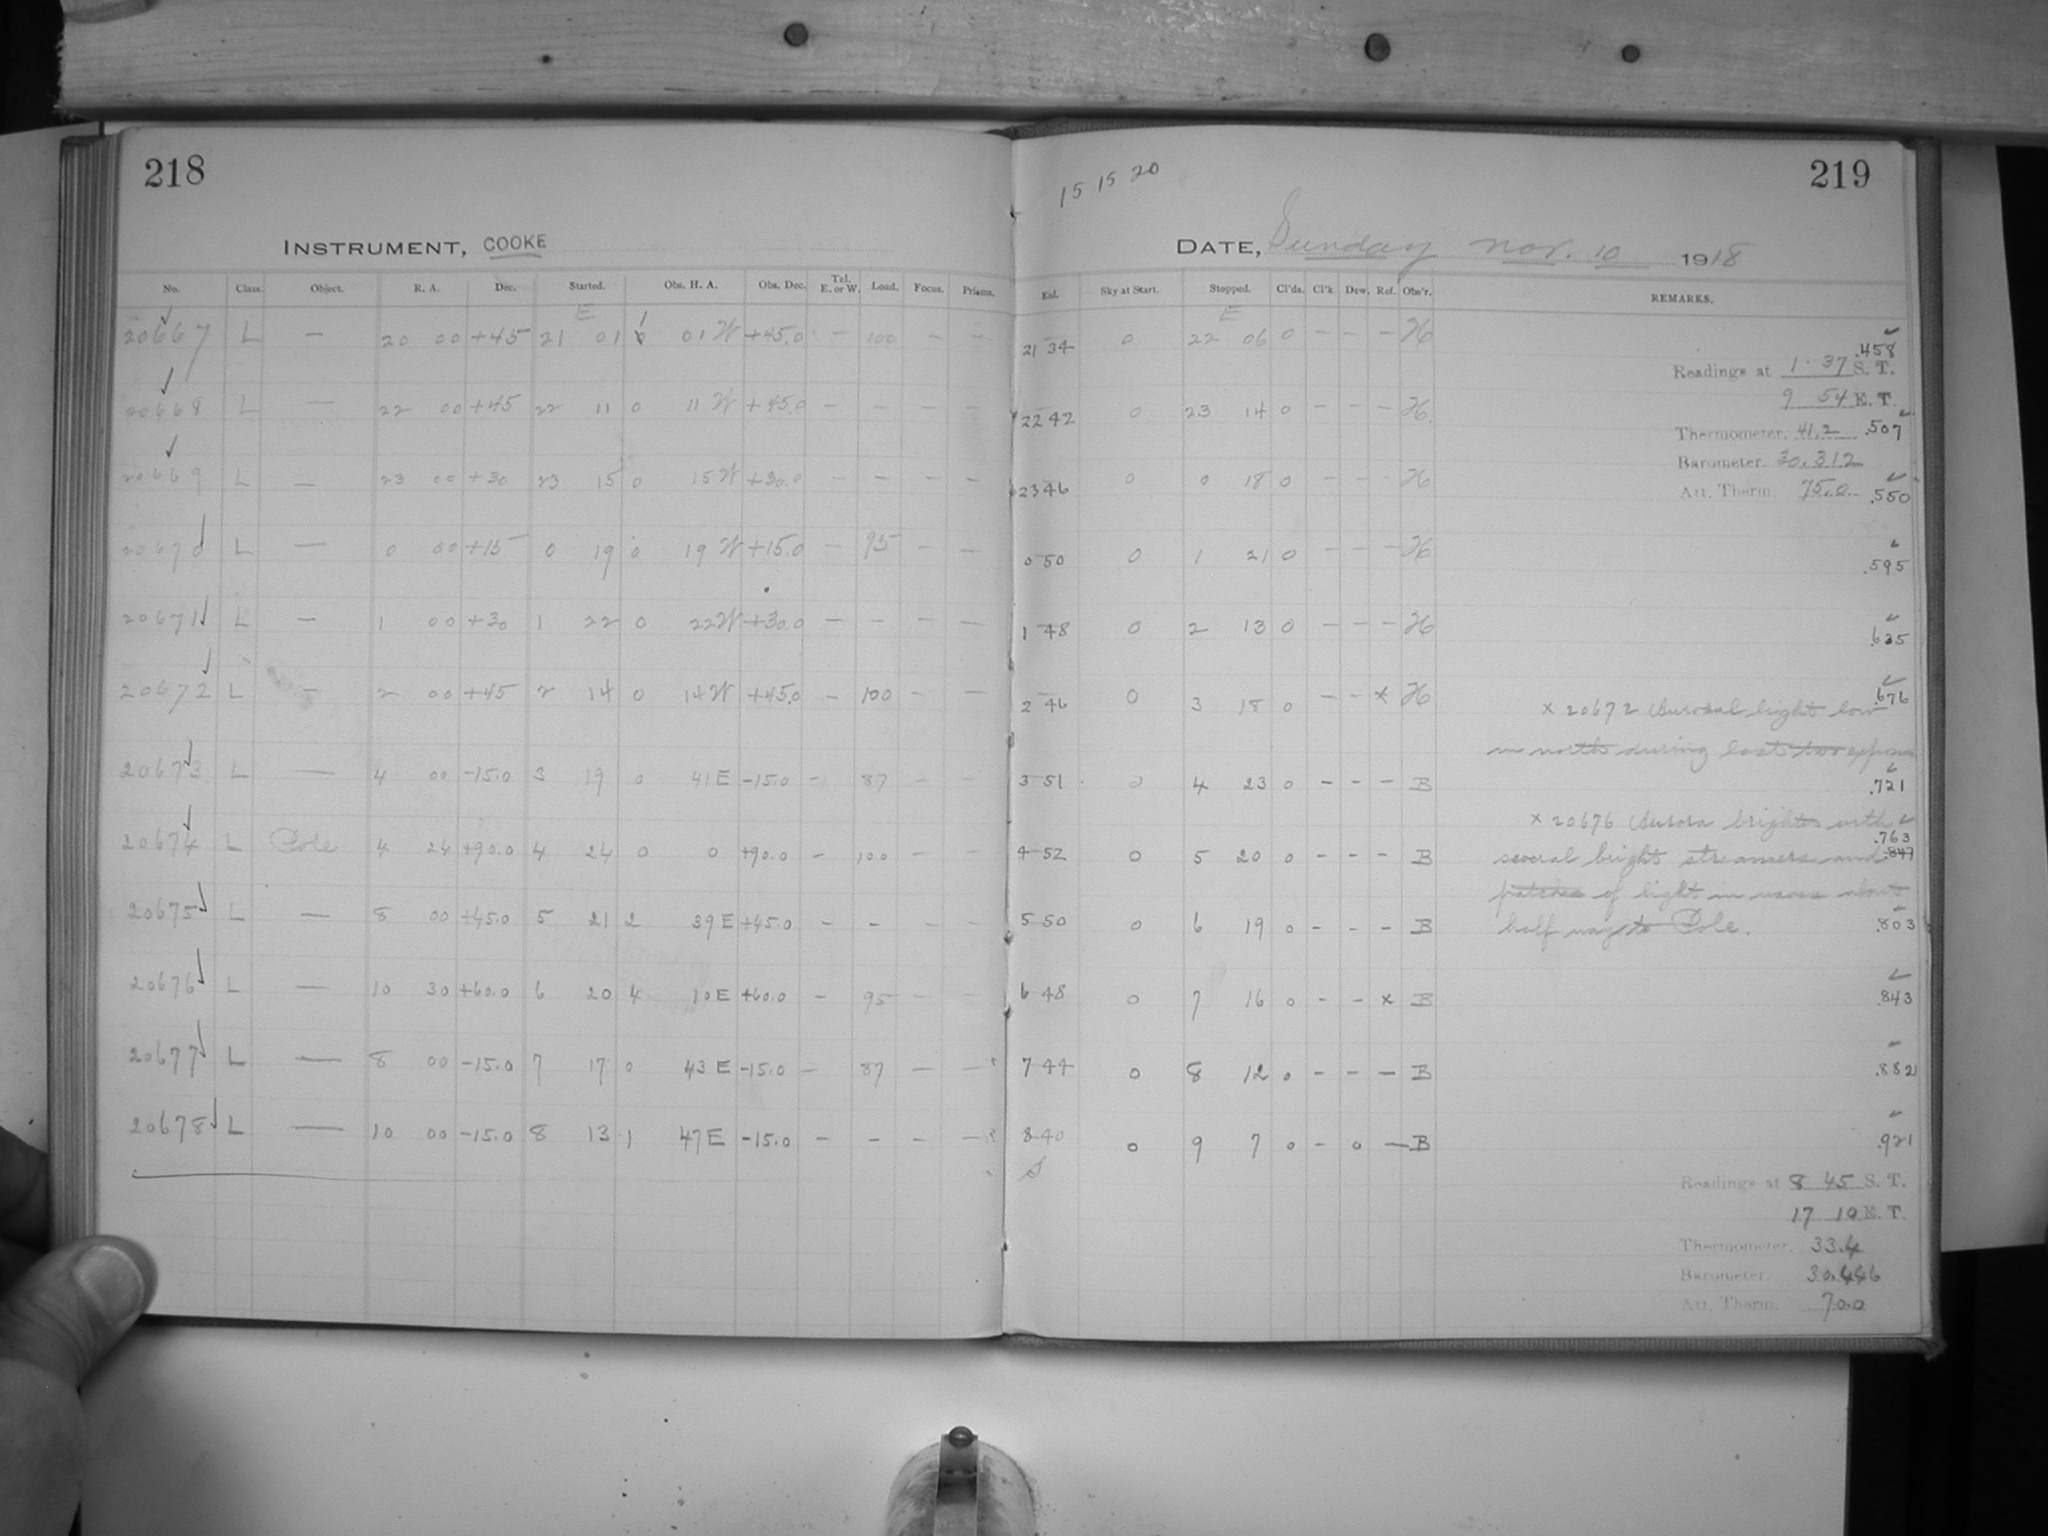 218
INSTRUMENT, COOKE
No. Class. Object. R. A. Dec. Started. Obs. H. A. Obs. Dec. Tel. E. or W. Load. Focus. Prisms.
E
20667 L — 20 00 +45 21 01 01 W +45.0 — 100 — —
20668 L — 22 00 +45 22 11 0 11 W +45.0 — — — —
20669 L — 23 00 +30 23 15 0 15 W +30.0 — — — —
20670 L — 0 00 +15 0 19 0 19 W +15.0 — 95 — —
20671 L — 1 00 +30 1 22 0 22 W +30.0 — — — —
20672 L — 2 00 +45 2 14 0 14 W +45.0 — 100 — —
20673 L — 4 00 -15.0 3 19 0 41 E -15.0 — 87 — —
20674 L Pole 4 24 +90.0 4 24 0 0 +90.0 — 100 — —
20675 L — 8 00 +45.0 5 21 2 39 E +45.0 — — — —
20676 L — 10 30 +60.0 6 20 4 10 E +60.0 — 95 — —
20677 L — 8 00 -15.0 7 17 0 43 E -15.0 — 87 — —
20678 L — 10 00 -15.0 8 13 1 47 E -15.0 — — — —
15 15 20
219
DATE, Sunday Nov. 10 1918
End. Sky at Start. Stopped. Cl'ds. Cl'k Dew. Ref. Obs'r. REMARKS.
E
21 34 0 22 06 0 — — — H .458
Readings at 1 37 S. T.
9 54 E. T.
22 42 0 23 14 0 — — — H .507
Thermometer. 41.2
Barometer. 30.312
23 46 0 0 18 0 — — — H .550
Att. Therm. 75.0
0 50 0 1 21 0 — — — H .595
1 48 0 2 13 0 — — — H .635
2 46 0 3 18 0 — — x H .676
x 20672 Auroral light low
in north during last two exposures
3 51 0 4 23 0 — — — B .721
x 20676 Aurora brighter with
4 52 0 5 20 0 — — — B .763
several bright streamers and .847
patches of light in about
5 50 0 6 19 0 — — — B .803
half way to Pole.
6 48 0 7 16 0 — — x B .843
7 44 0 8 12 0 — — — B .882
8 40 0 9 7 0 — 0 — B .921
Readings at 8 45 S. T.
17 10 E. T.
Thermometer. 33.4
Barometer. 30.446
Att. Therm. 70.0